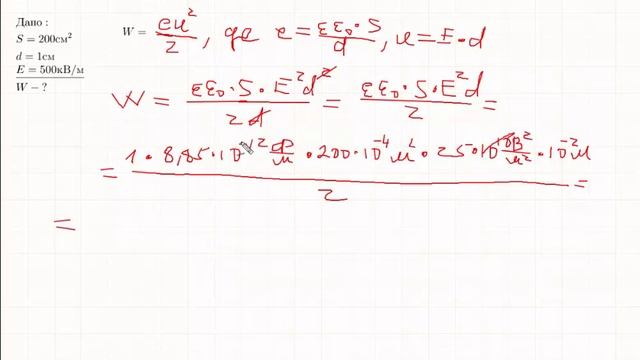 Дано :
S = 200см²
d = 1см
E = 500кВ/м
W − ?
W = cu²/2, где c = εε₀·S/d, u = E·d
W = εε₀·S·E²d²/2d = εε₀·S·E²d/2 =
= 1·8,85·10⁻¹² Ф/м · 200·10⁻⁴ м² · 25·10¹⁰ В²/м² · 10⁻² м / 2 =
=